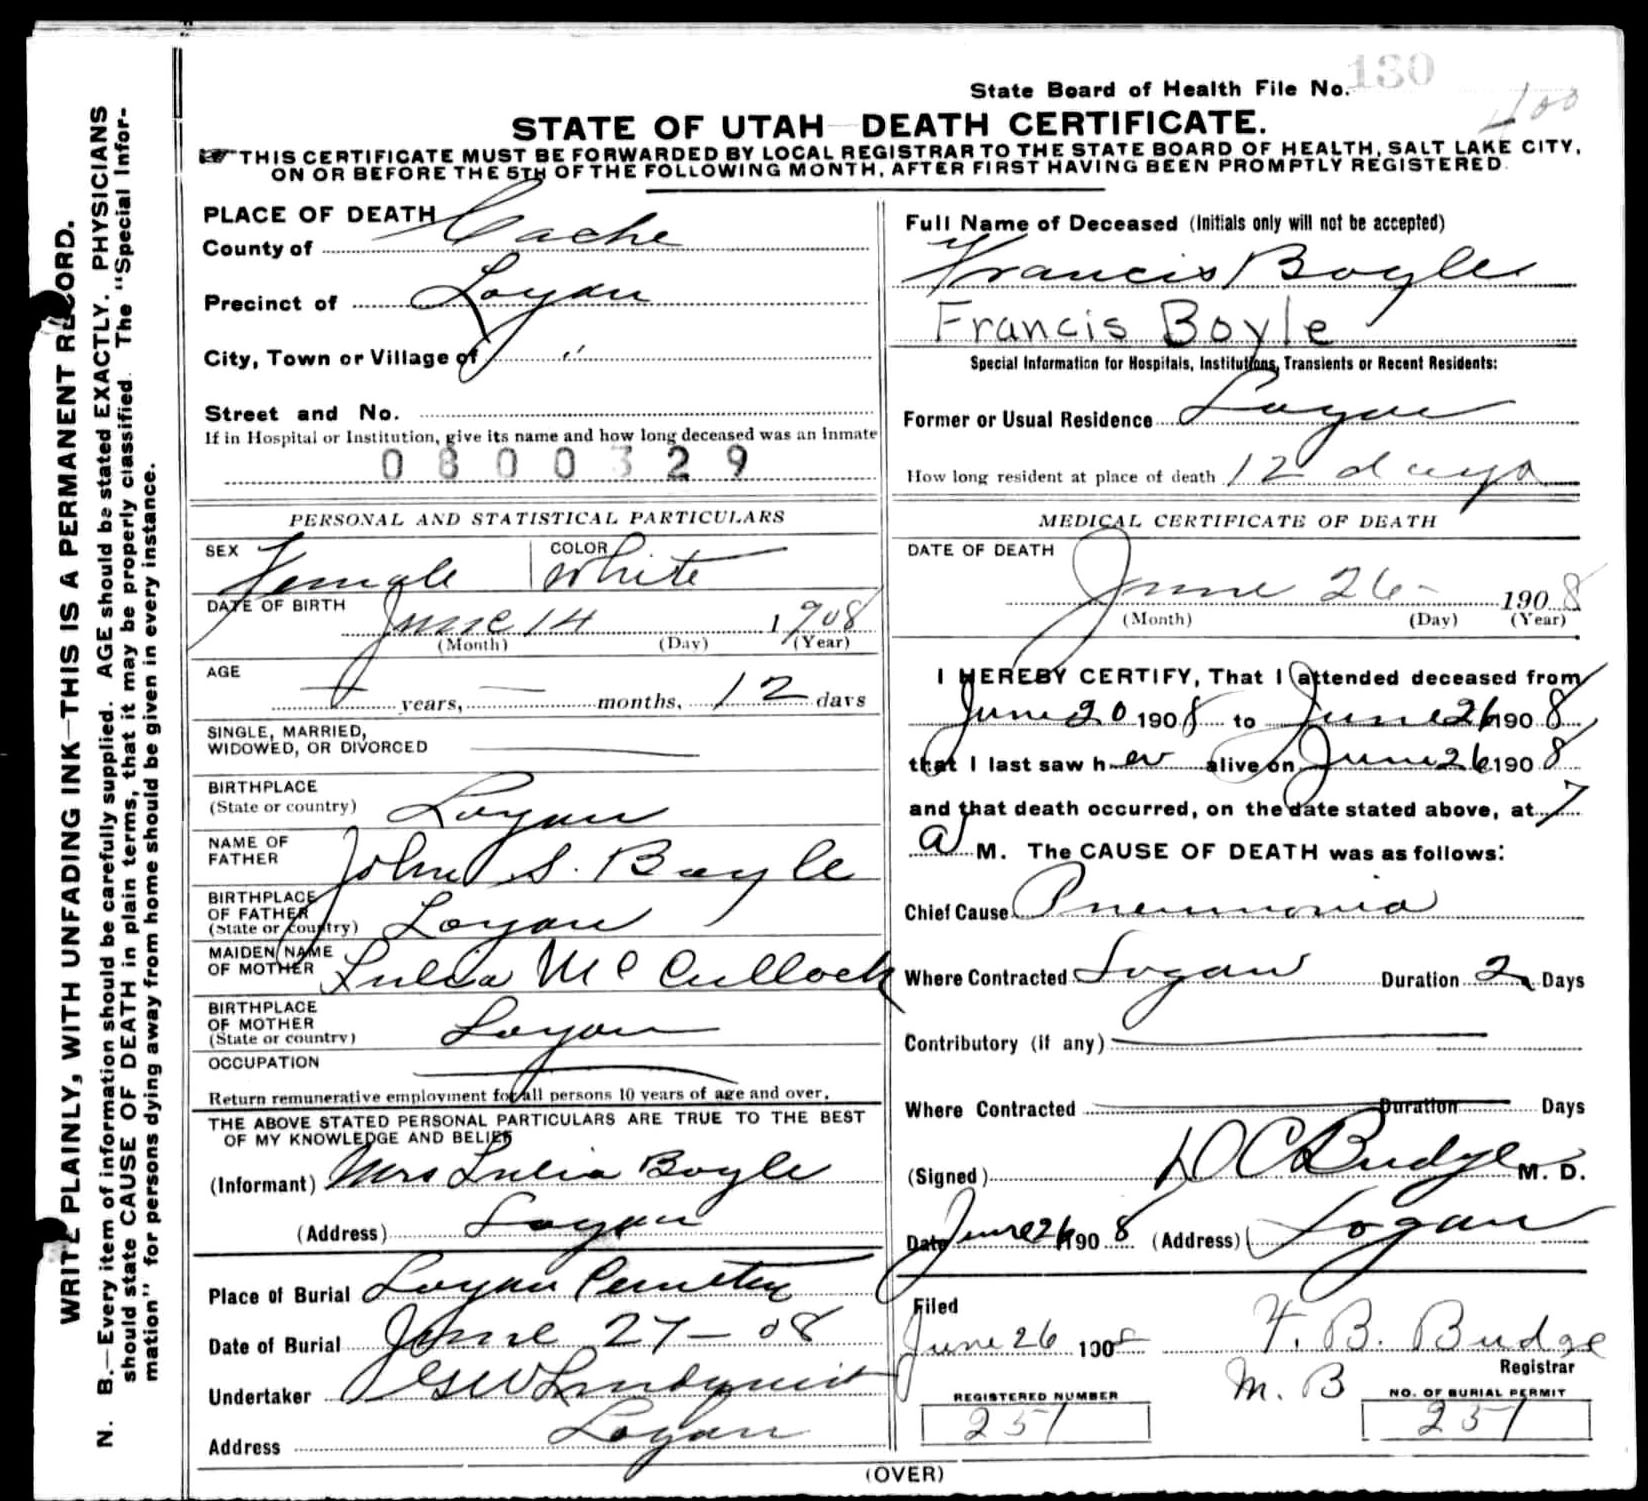 State Board of Health File No. 130
400
STATE OF UTAH DEATH CERTIFICATE.
THIS CERTIFICATE MUST BE FORWARDED BY LOCAL REGISTRAR TO THE STATE BOARD OF HEALTH, SALT LAKE CITY,
ON OR BEFORE THE 5TH OF THE FOLLOWING MONTH, AFTER FIRST HAVING BEEN PROMPTLY REGISTERED.
WRITE PLAINLY, WITH UNFADING INK—THIS IS A PERMANENT RECORD.
N. B.—Every item of information should be carefully supplied. AGE should be stated EXACTLY. PHYSICIANS
should state CAUSE OF DEATH in plain terms, that it may be properly classified. The "Special Infor-
mation" for persons dying away from home should be given in every instance.
PLACE OF DEATH
County of Cache
Precinct of Logan
City, Town or Village of "
Street and No.
If in Hospital or Institution, give its name and how long deceased was an Inmate
0800329
PERSONAL AND STATISTICAL PARTICULARS
SEX Female COLOR White
DATE OF BIRTH
June 14 1908
(Month) (Day) (Year)
AGE
— years, — months, 12 days
SINGLE, MARRIED,
WIDOWED, OR DIVORCED —
BIRTHPLACE
(State or country) Logan
NAME OF
FATHER John S. Boyle
BIRTHPLACE
OF FATHER
(State or country) Logan
MAIDEN NAME
OF MOTHER Lulia McCullock
BIRTHPLACE
OF MOTHER
(State or country) Logan
OCCUPATION —
Return remunerative employment for all persons 10 years of age and over.
THE ABOVE STATED PERSONAL PARTICULARS ARE TRUE TO THE BEST
OF MY KNOWLEDGE AND BELIEF
(Informant) Mrs Lulia Boyle
(Address) Logan
Place of Burial Logan Cemetery
Date of Burial June 27 – 08
Undertaker G W Lindquist
Address Logan
Full Name of Deceased (Initials only will not be accepted)
Francis Boyle
Francis Boyle
Special Information for Hospitals, Institutions, Transients or Recent Residents:
Former or Usual Residence Logan
How long resident at place of death 12 days
MEDICAL CERTIFICATE OF DEATH
DATE OF DEATH
June 26 – 1908
(Month) (Day) (Year)
I HEREBY CERTIFY, That I attended deceased from
June 20 1908 to June 26 1908
that I last saw her alive on June 26 1908
and that death occurred, on the date stated above, at 7
a M. The CAUSE OF DEATH was as follows:
Chief Cause Pneumonia
Where Contracted Logan Duration 2 Days
Contributory (if any) —
Where Contracted — Duration Days
(Signed) D C Budge M. D.
Date June 26 1908 (Address) Logan
Filed
June 26 1908 F. B. Budge
Registrar
M. B
REGISTERED NUMBER
251
NO. OF BURIAL PERMIT
251
(OVER)